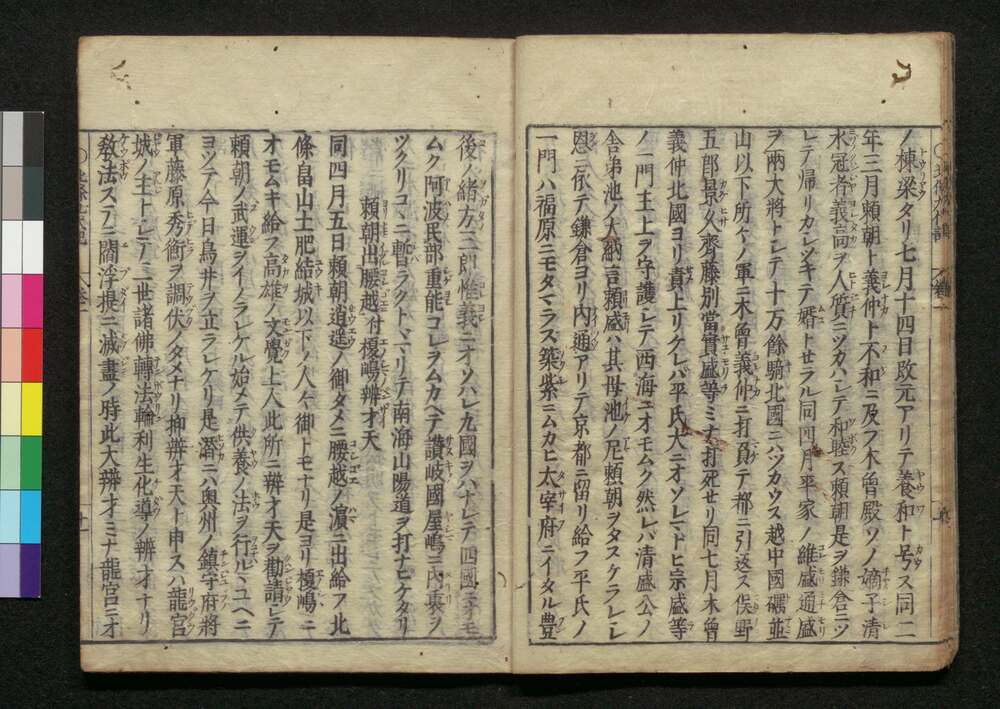 ノ棟梁タリ七月十四日改元アリテ養和ト号ス同二
年三月頼朝ト義仲ト不和ニ及フ木曽殿ソノ嫡子清
水冠者義高ヲ人質ニツカハシテ和睦ス頼朝是ヲ鎌倉ニツ
レテ帰リカシツキテ婿トセラル同四月平家ノ維盛通盛
ヲ両大将トシテ十万餘騎北國ニハツカウス越中國礪並
山以下所々ノ軍ニ木曽義仲ニ打負テ都ニ引返ス俣野
五郎景久齊藤別當實盛等ミナ打死セリ同七月木曽
義仲北國ヨリ責上リケレハ平氏大ニオソレマトヒ宗盛等
ノ一門主上ヲ守護シテ西海ニオモムク然レハ清盛公ノ
舎弟池ノ大納言頼盛ハ其母池ノ尼頼朝ヲタスケラレシ
恩ニ依テ鎌倉ヨリ内通アリテ京都ニ留リ給フ平氏ノ
一門ハ福原ニモタマラス築紫ニムカヒ太宰府ニイタル豊
後ノ緒方三郎惟義ニオソハレ九國ヲハナレテ四國ニオモ
ムク阿波民部重能コレヲムカヘテ讃岐國屋嶋ニ内裏ヲ
ツクリコヽニ暫ラクトヽマリテ南海山陽道ヲ打ナヒケタリ
頼朝出腰越付榎嶋辨才天
同四月五日頼朝逍遥ノ御タメニ腰越ノ濵ニ出給フ北
條畠山土肥結城以下ノ人々御トモナリ是ヨリ榎嶋ニ
オモムキ給フ高雄ノ文覺上人此所ニ辨才天ヲ勸請シテ
頼朝ノ武運ヲイノラレケル始メテ供養ノ法ヲ行ルユヘニ
ヨツテ今日鳥井ヲ立ラレケリ是潜ニハ奥州ノ鎮守府將
軍藤原秀衡ヲ調伏ノタメナリ抑辨才天ト申スハ龍宮
城ノ主トシテ三世諸佛轉法輪利生化導ノ辨才ナリ
教法ステニ閻浮提ニ滅盡ノ時此大辨才ミナ龍宮ニオ